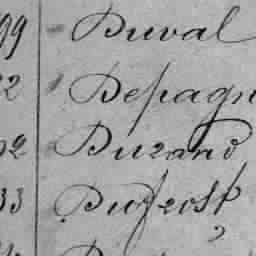 99 Duval
22 Depagn
92 Durand
33 Dufrost